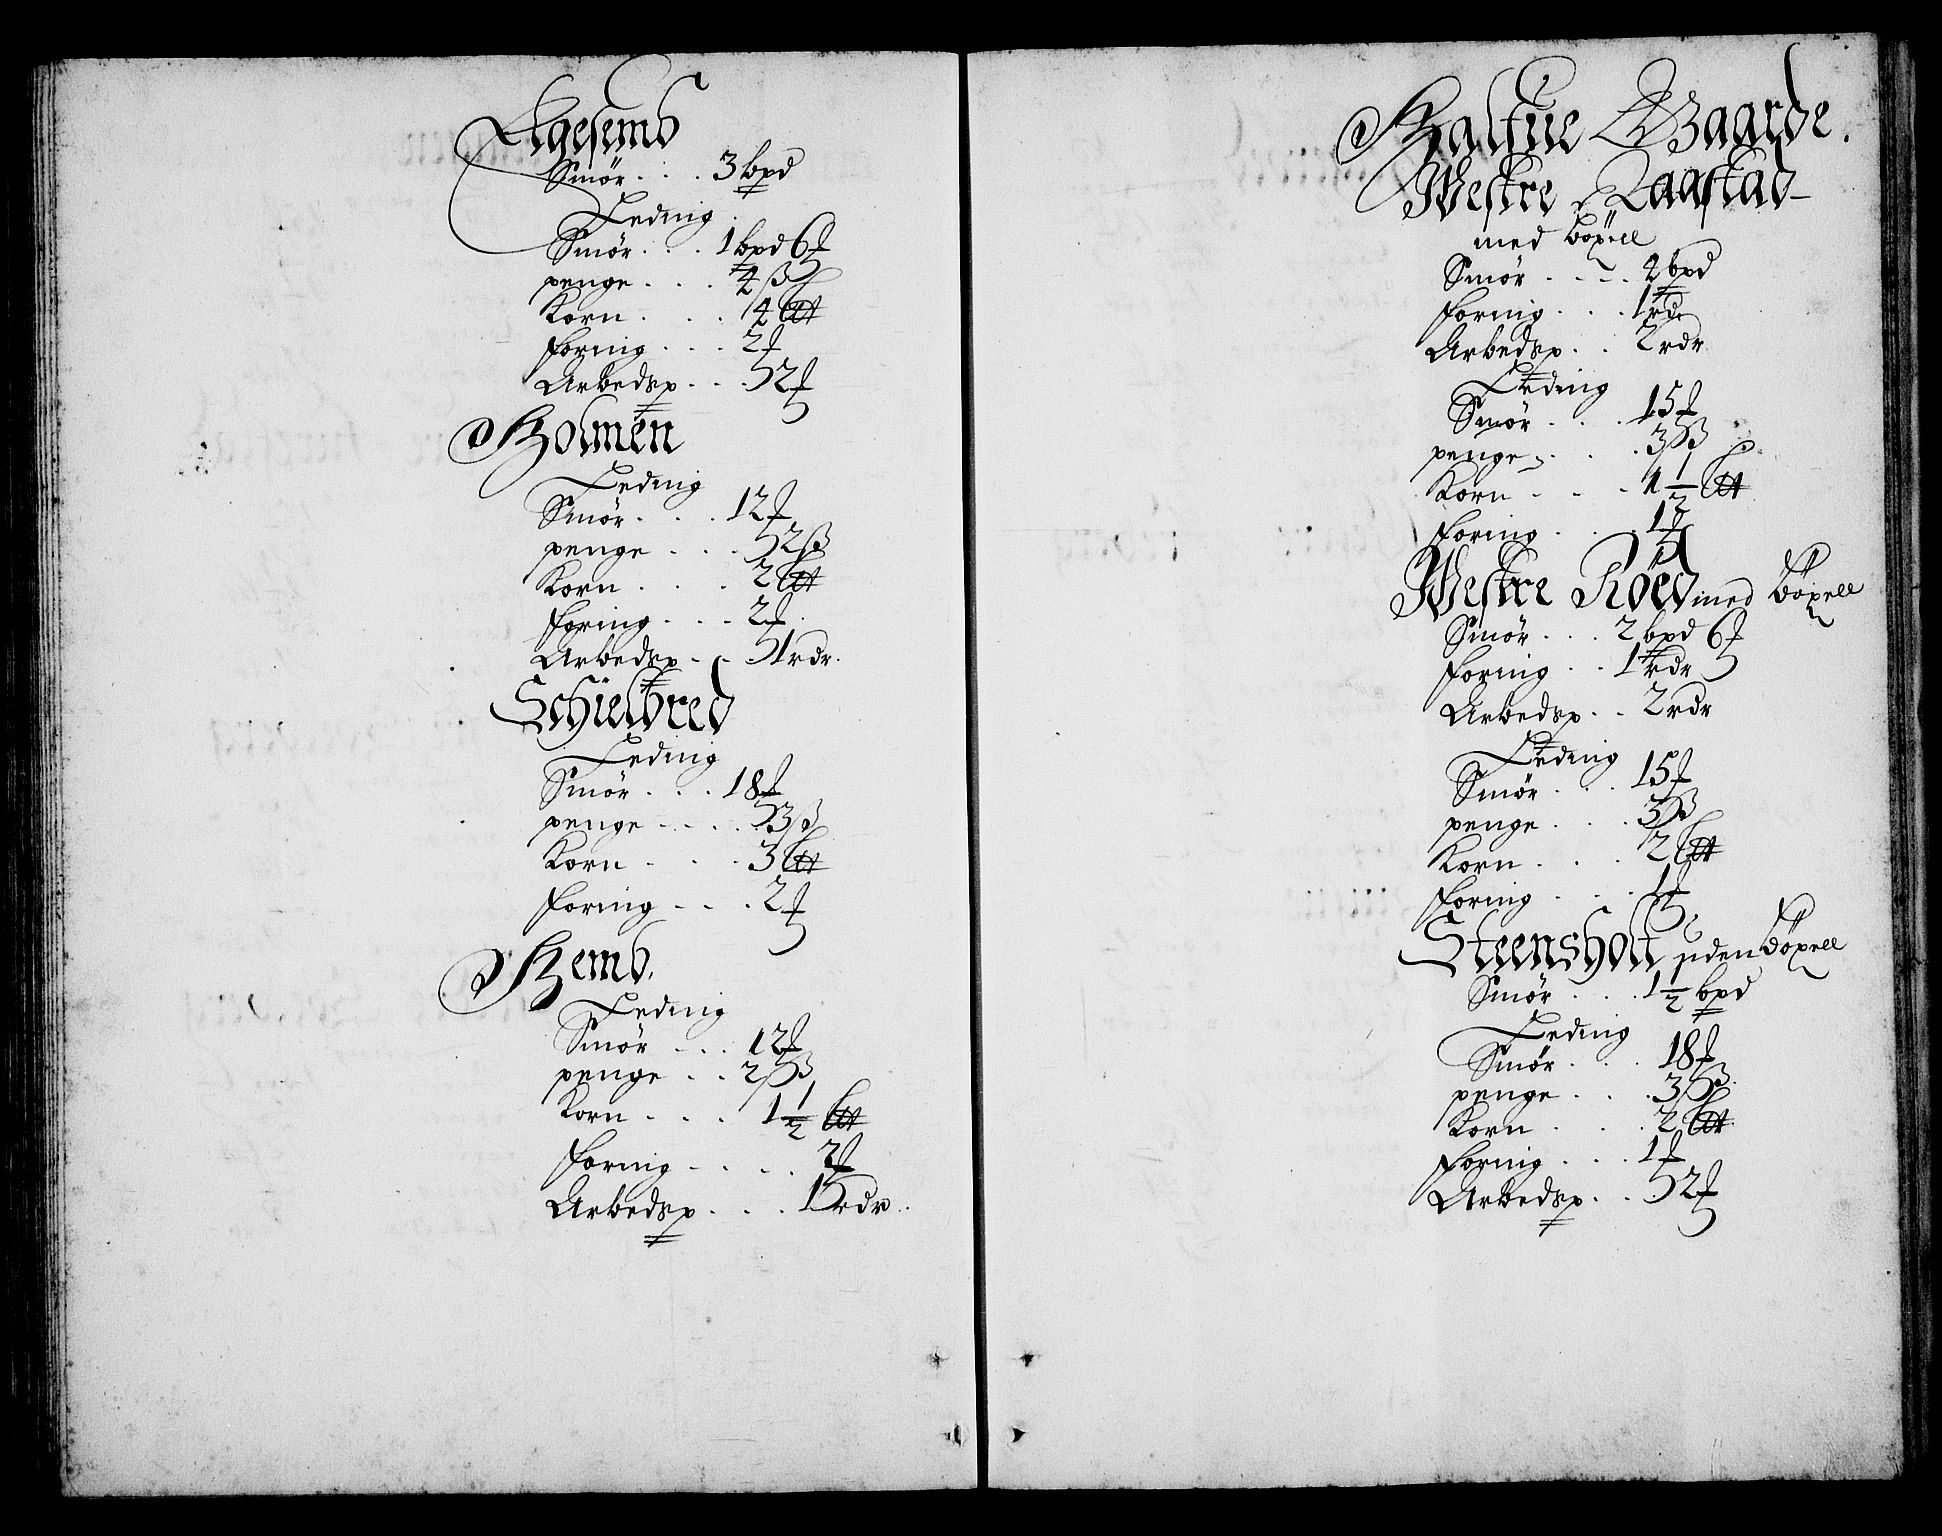 Agesemb
Smør . . . 3 bpd
Leding
Smør . . . 1 bpd 6 ℔
penge . . . 4 ß
Korn . . . 4 ltt
foring . . . 2 ℔
Arbedsp . . 2 ℔
Holmen
Leding
Smør . . . 12 ℔
penge . . . 2 ß
Korn . . . 2 ltt
foring . . . 2 ℔
Arbedsp . . 1 rdr.
Schielbred
Leding
Smør . . . 18 ℔
penge . . . 3 ß
Korn . . . 3 ltt
foring . . . 2 ℔
Hemb.
Leding
Smør . . . 12 ℔
penge . . 2 ß
Korn . . . 1 1/2 ltt
foring . . . 2 ℔
Arbedsp . . . 1 rdr.
Halfue Gaarde.
Westre Raastad
med böxell
Smør . . . 2 bpd
foring . . . 1 rdr
Arbedsp . . 2 rdr
Leding
Smør . . . 15 ℔
penge . . . 3 ß
Korn . . . 1 1/2 ltt
foring . . . 1 ℔
Westre Röed med böxell
Smør . . . 2 bpd 6 ℔
foring . . 1 rdr
Arbedsp . . 2 rdr
Leding
Smør . . . 15 ℔
penge . . . 3 ß
Korn . . . 2 ltt
foring . . . 1 ℔
Steensholt uden Böxell
Smør . . . 1 1/2 bpd
Leding
Smør . . . 18 ℔
penge . . . 3 ß
Korn . . . 2 ltt
foring . . . 1 ℔
Arbedsp . . 2 ℔